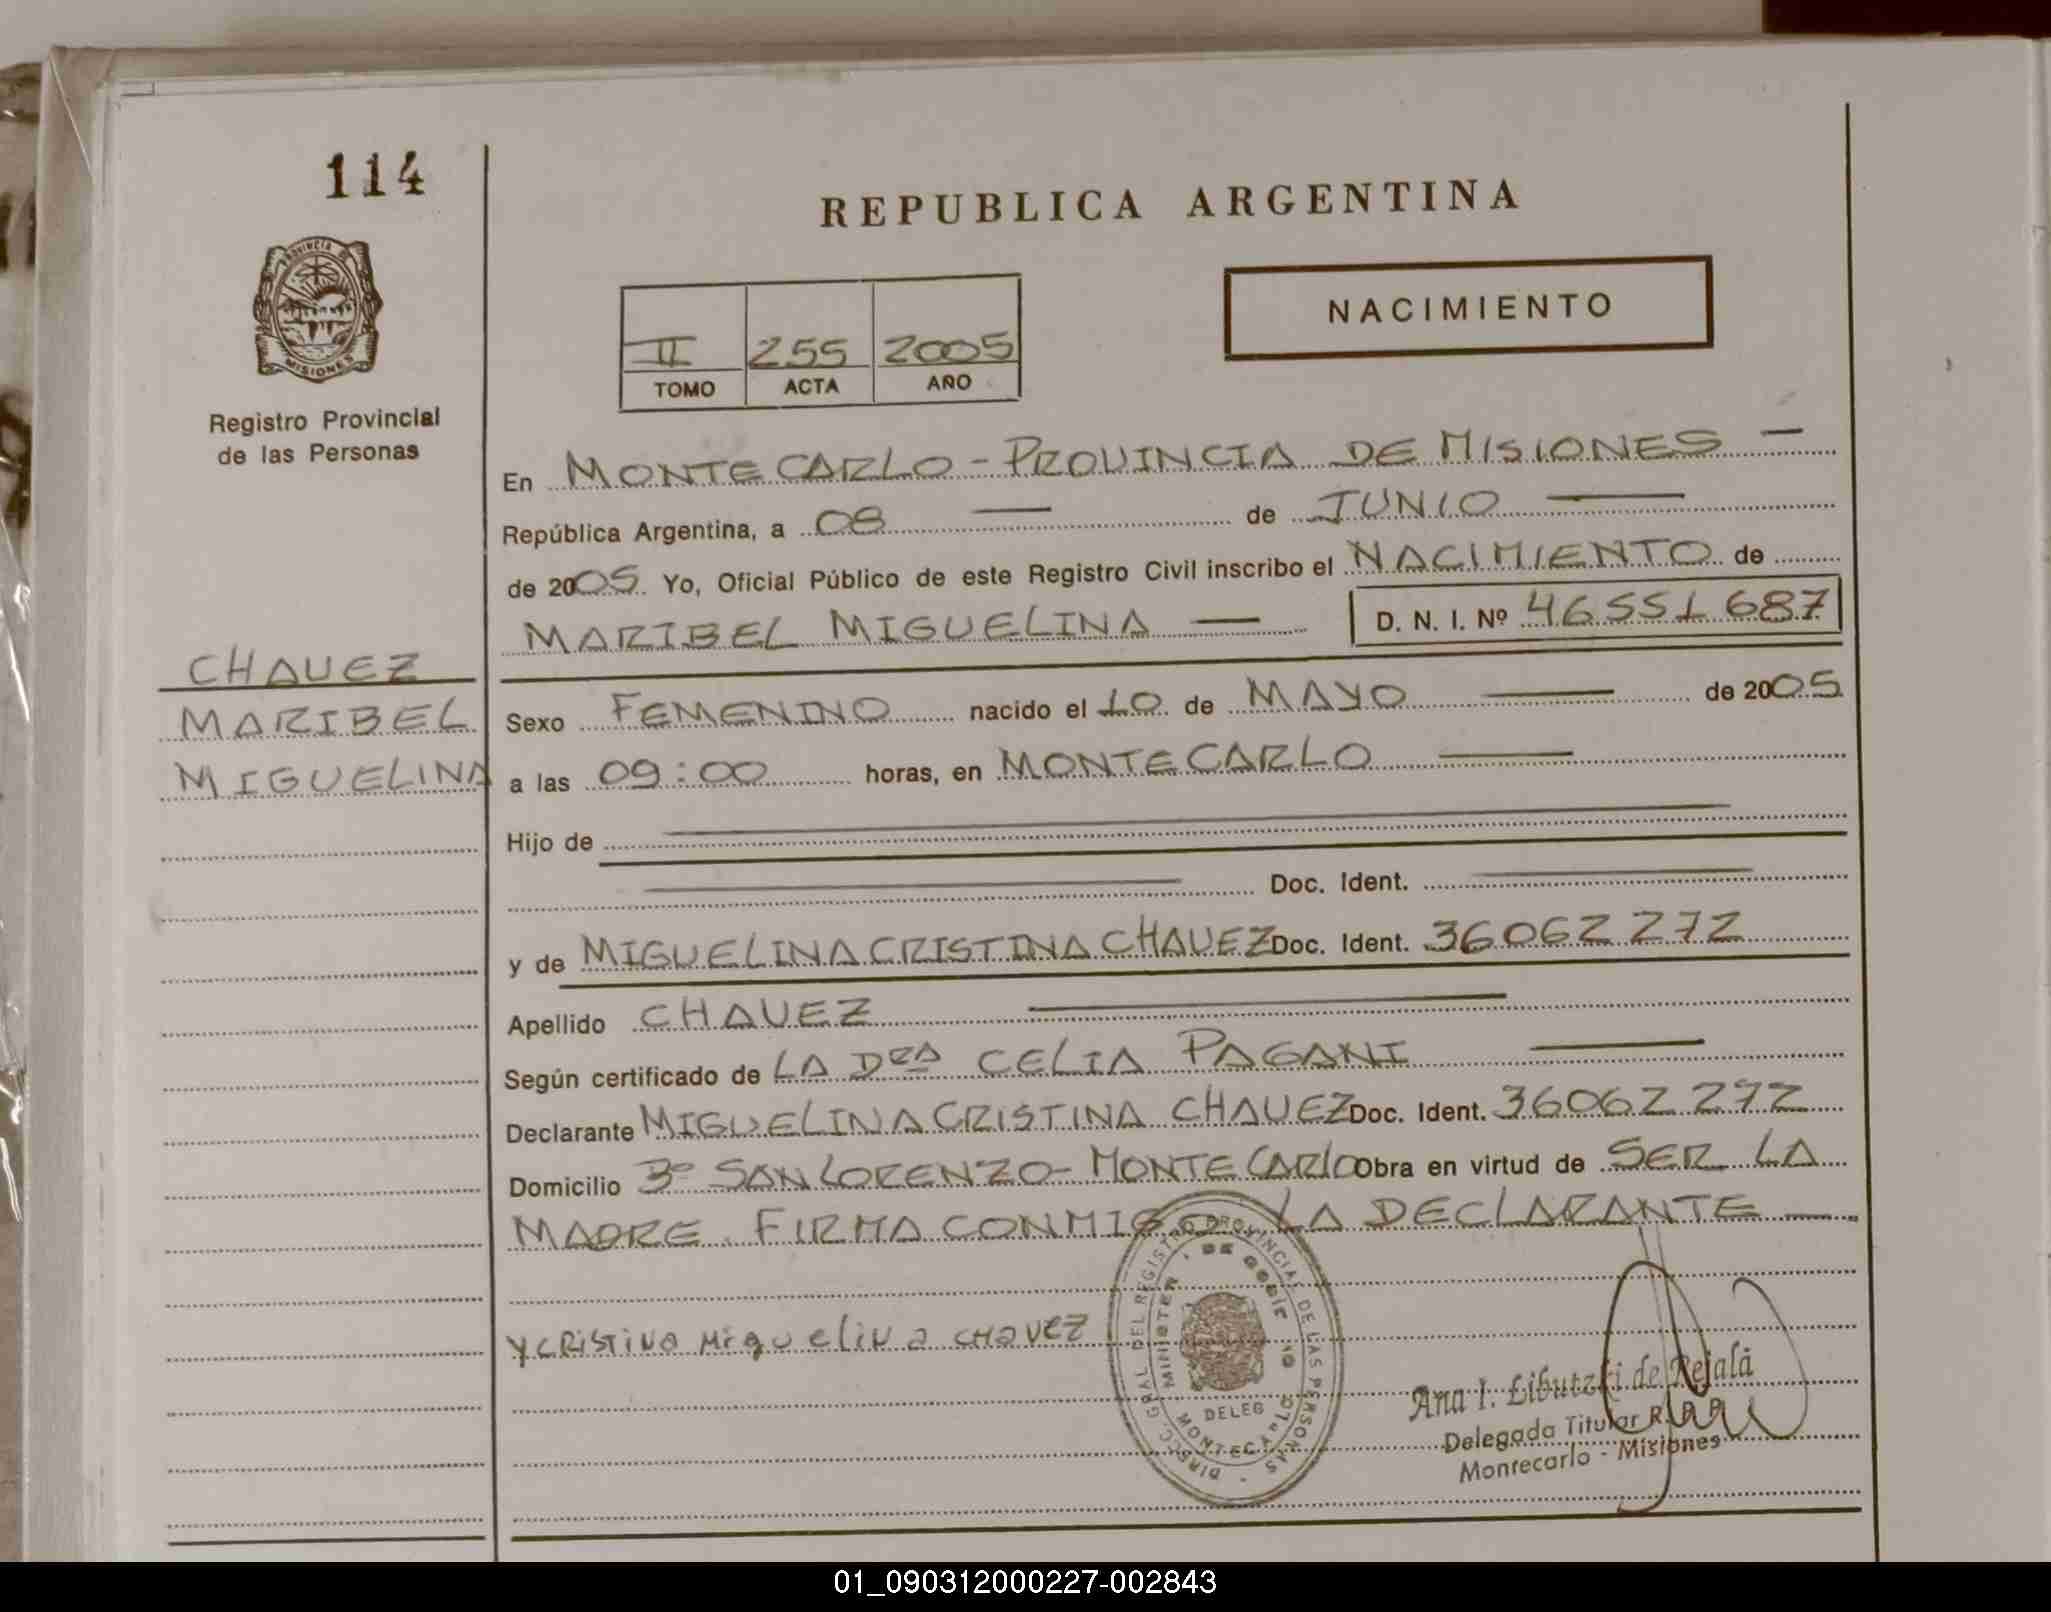 114
REPUBLICA ARGENTINA
PROVINCIA DE
MISIONES
NACIMIENTO
II 255 2005
TOMO ACTA AÑO
Registro Provincial
de las Personas
En MONTECARLO - PROVINCIA DE MISIONES —
República Argentina, a 08 — de JUNIO —
de 2005. Yo, Oficial Público de este Registro Civil inscribo el NACIMIENTO de
MARIBEL MIGUELINA — D. N. I. Nº 46551687
CHAVEZ
MARIBEL
MIGUELINA
Sexo FEMENINO nacido el 10 de MAYO — de 2005
a las 09:00 horas, en MONTECARLO —
Hijo de —
— Doc. Ident. —
y de MIGUELINA CRISTINA CHAVEZ Doc. Ident. 36062272
Apellido CHAVEZ —
Según certificado de LA DRA CELIA PAGANI —
Declarante MIGUELINA CRISTINA CHAVEZ Doc. Ident. 36062272
Domicilio Bº SAN LORENZO - MONTECARLO Obra en virtud de SER LA
MADRE. FIRMA CONMIGO LA DECLARANTE —
YCRISTINA MigueliNa CHavEZ
DIRECC. GRAL DEL REGISTRO PROVINCIAL DE LAS PERSONAS
DELEG
MONTECARLO
Ana I. Libutzki de Rejalá
Delegada Titular R. P. P.
Montecarlo - Misiones
01_090312000227-002843